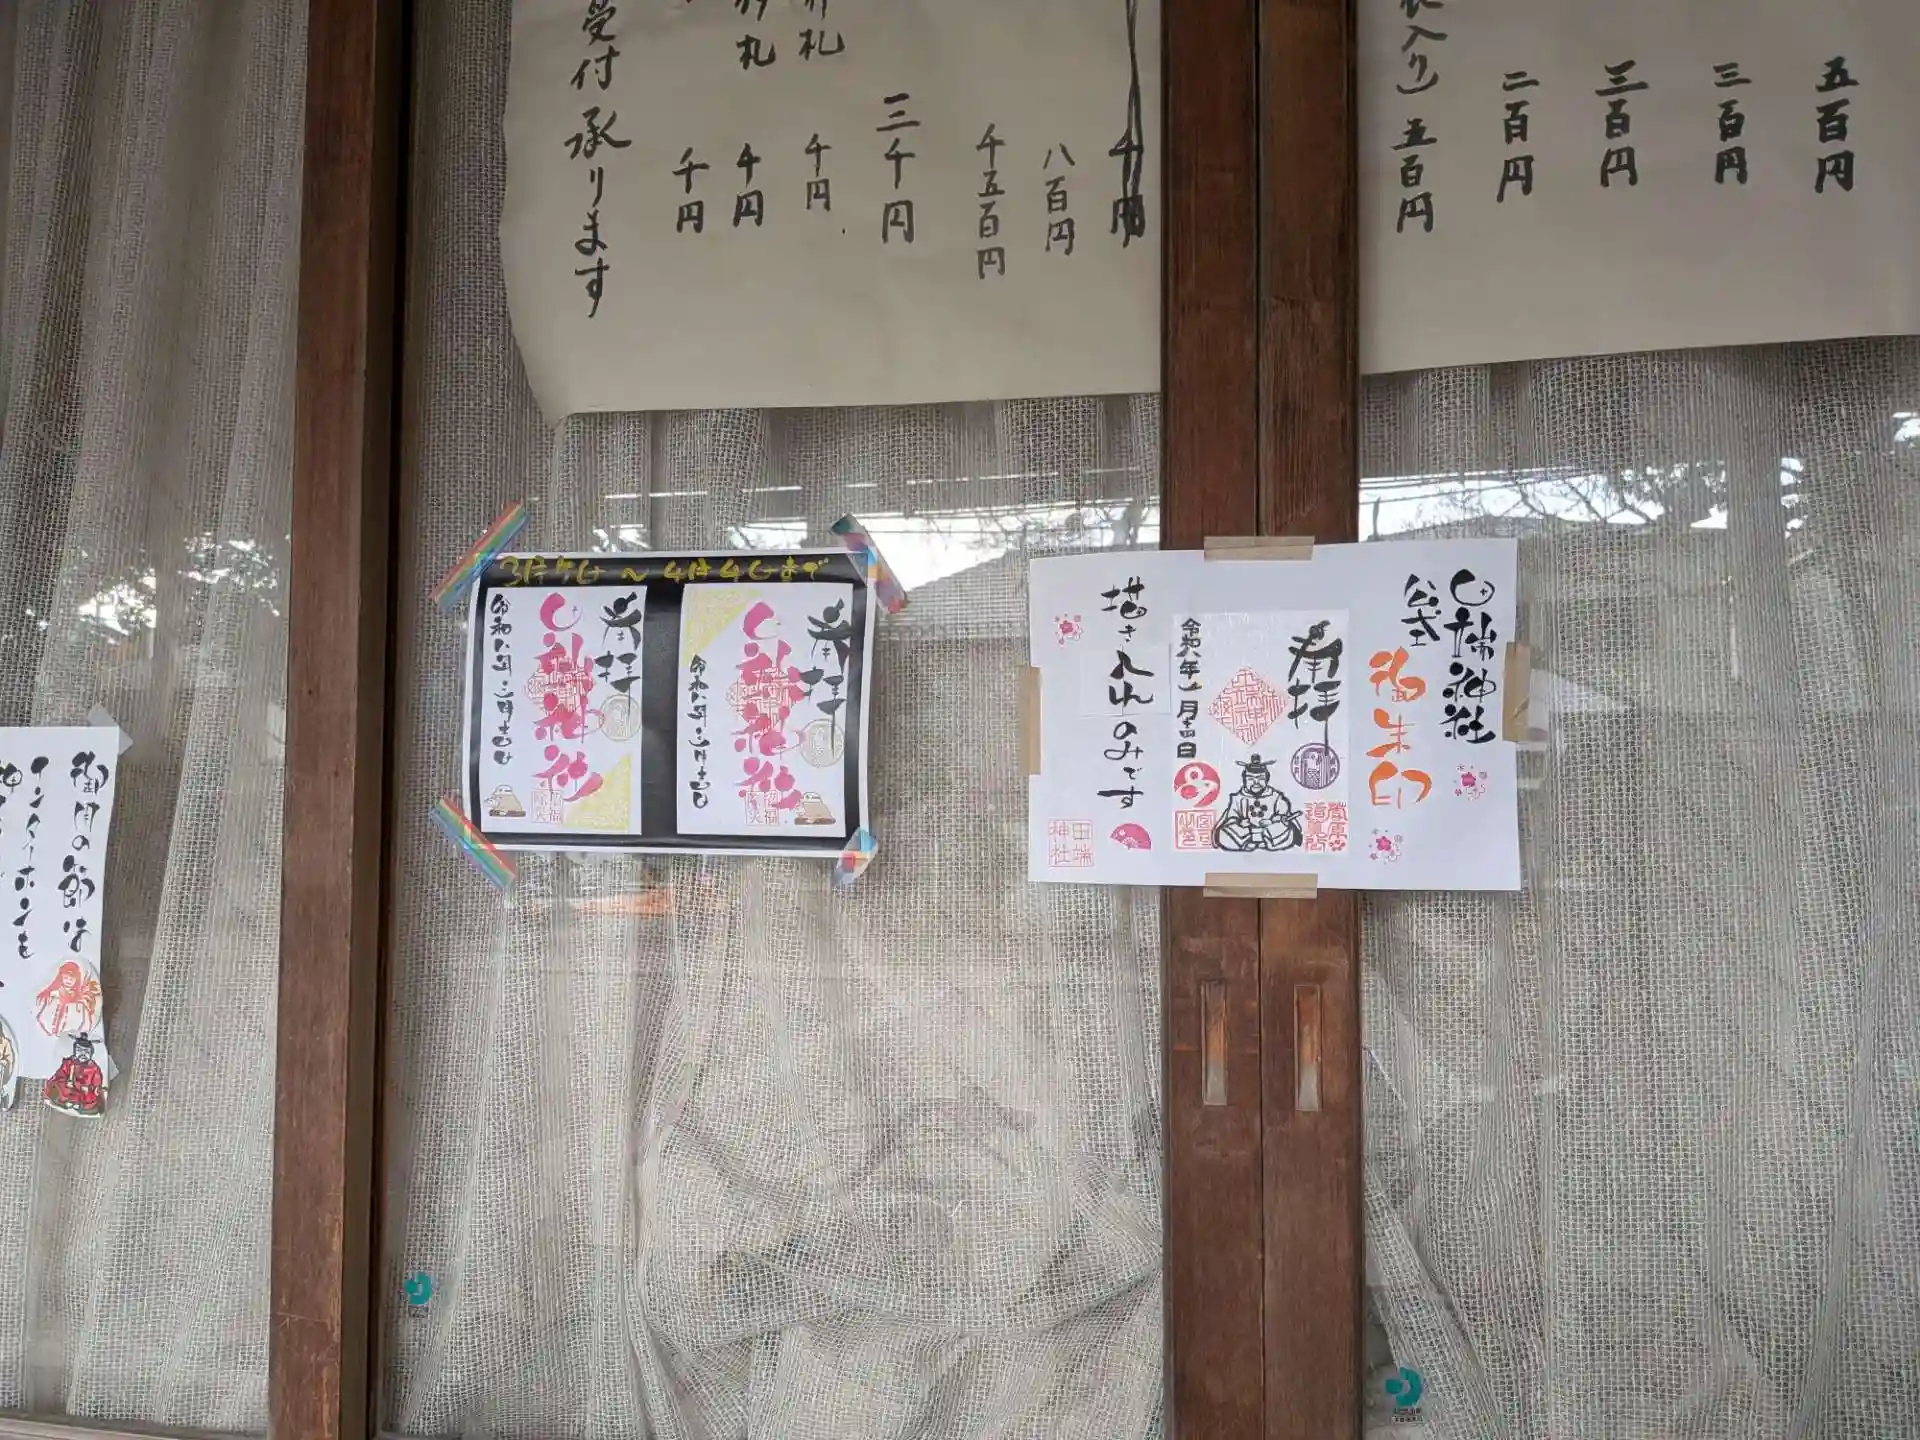 五百円
三百円
三百円
二百円
入り)五百円
千円
八百円
千五百円
三千円
札 千円
札 千円
千円
受付承ります
田端神社
公式
御朱印
奉拝
令和八年一月十四日
描き入れのみです
田端
神社
3月5日~4月4日まで
奉拝
田端神社
奉拝
田端神社
御用の節は
インターホンを